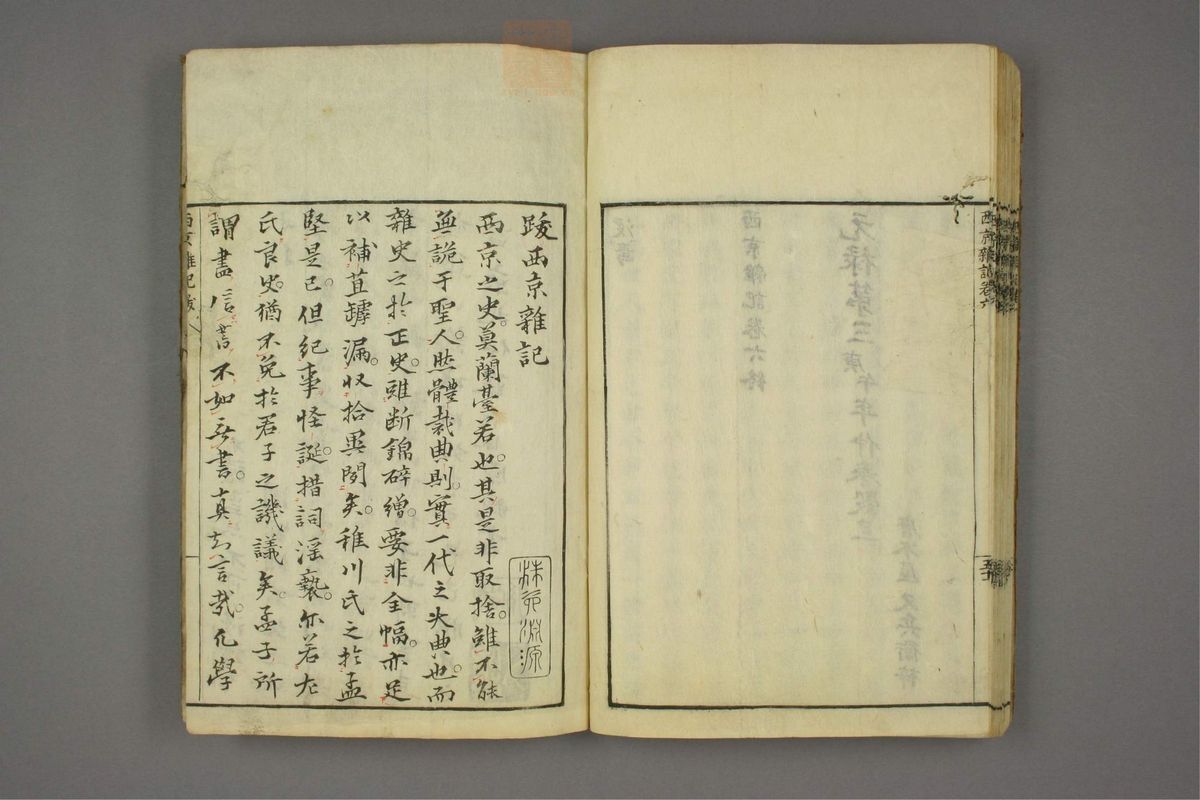 西京雜記卷六
五十
跋西京雜記
西京之史。莫蘭臺若也。其是非取捨。雖不能
無詭于聖人。然體裁典則。實一代之大典也。而
雜史之於正史。雖斷錦碎繒。要非全幅。亦足
以補苴罅漏。収拾異聞矣。稚川氏之於孟
堅是已。但紀事怪誕。措詞淫褻。亦若左
氏良史。猶不免於君子之譏議矣。孟子所
謂盡信書不如無書。真知言哉。凡學
西京雜記跋
林苑淵源
元禄第三庚午年仲
西京雜記卷六終